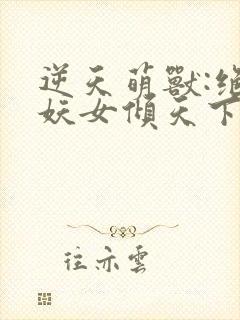 逆天萌獸:絕
妖女傾天下
往亦雲